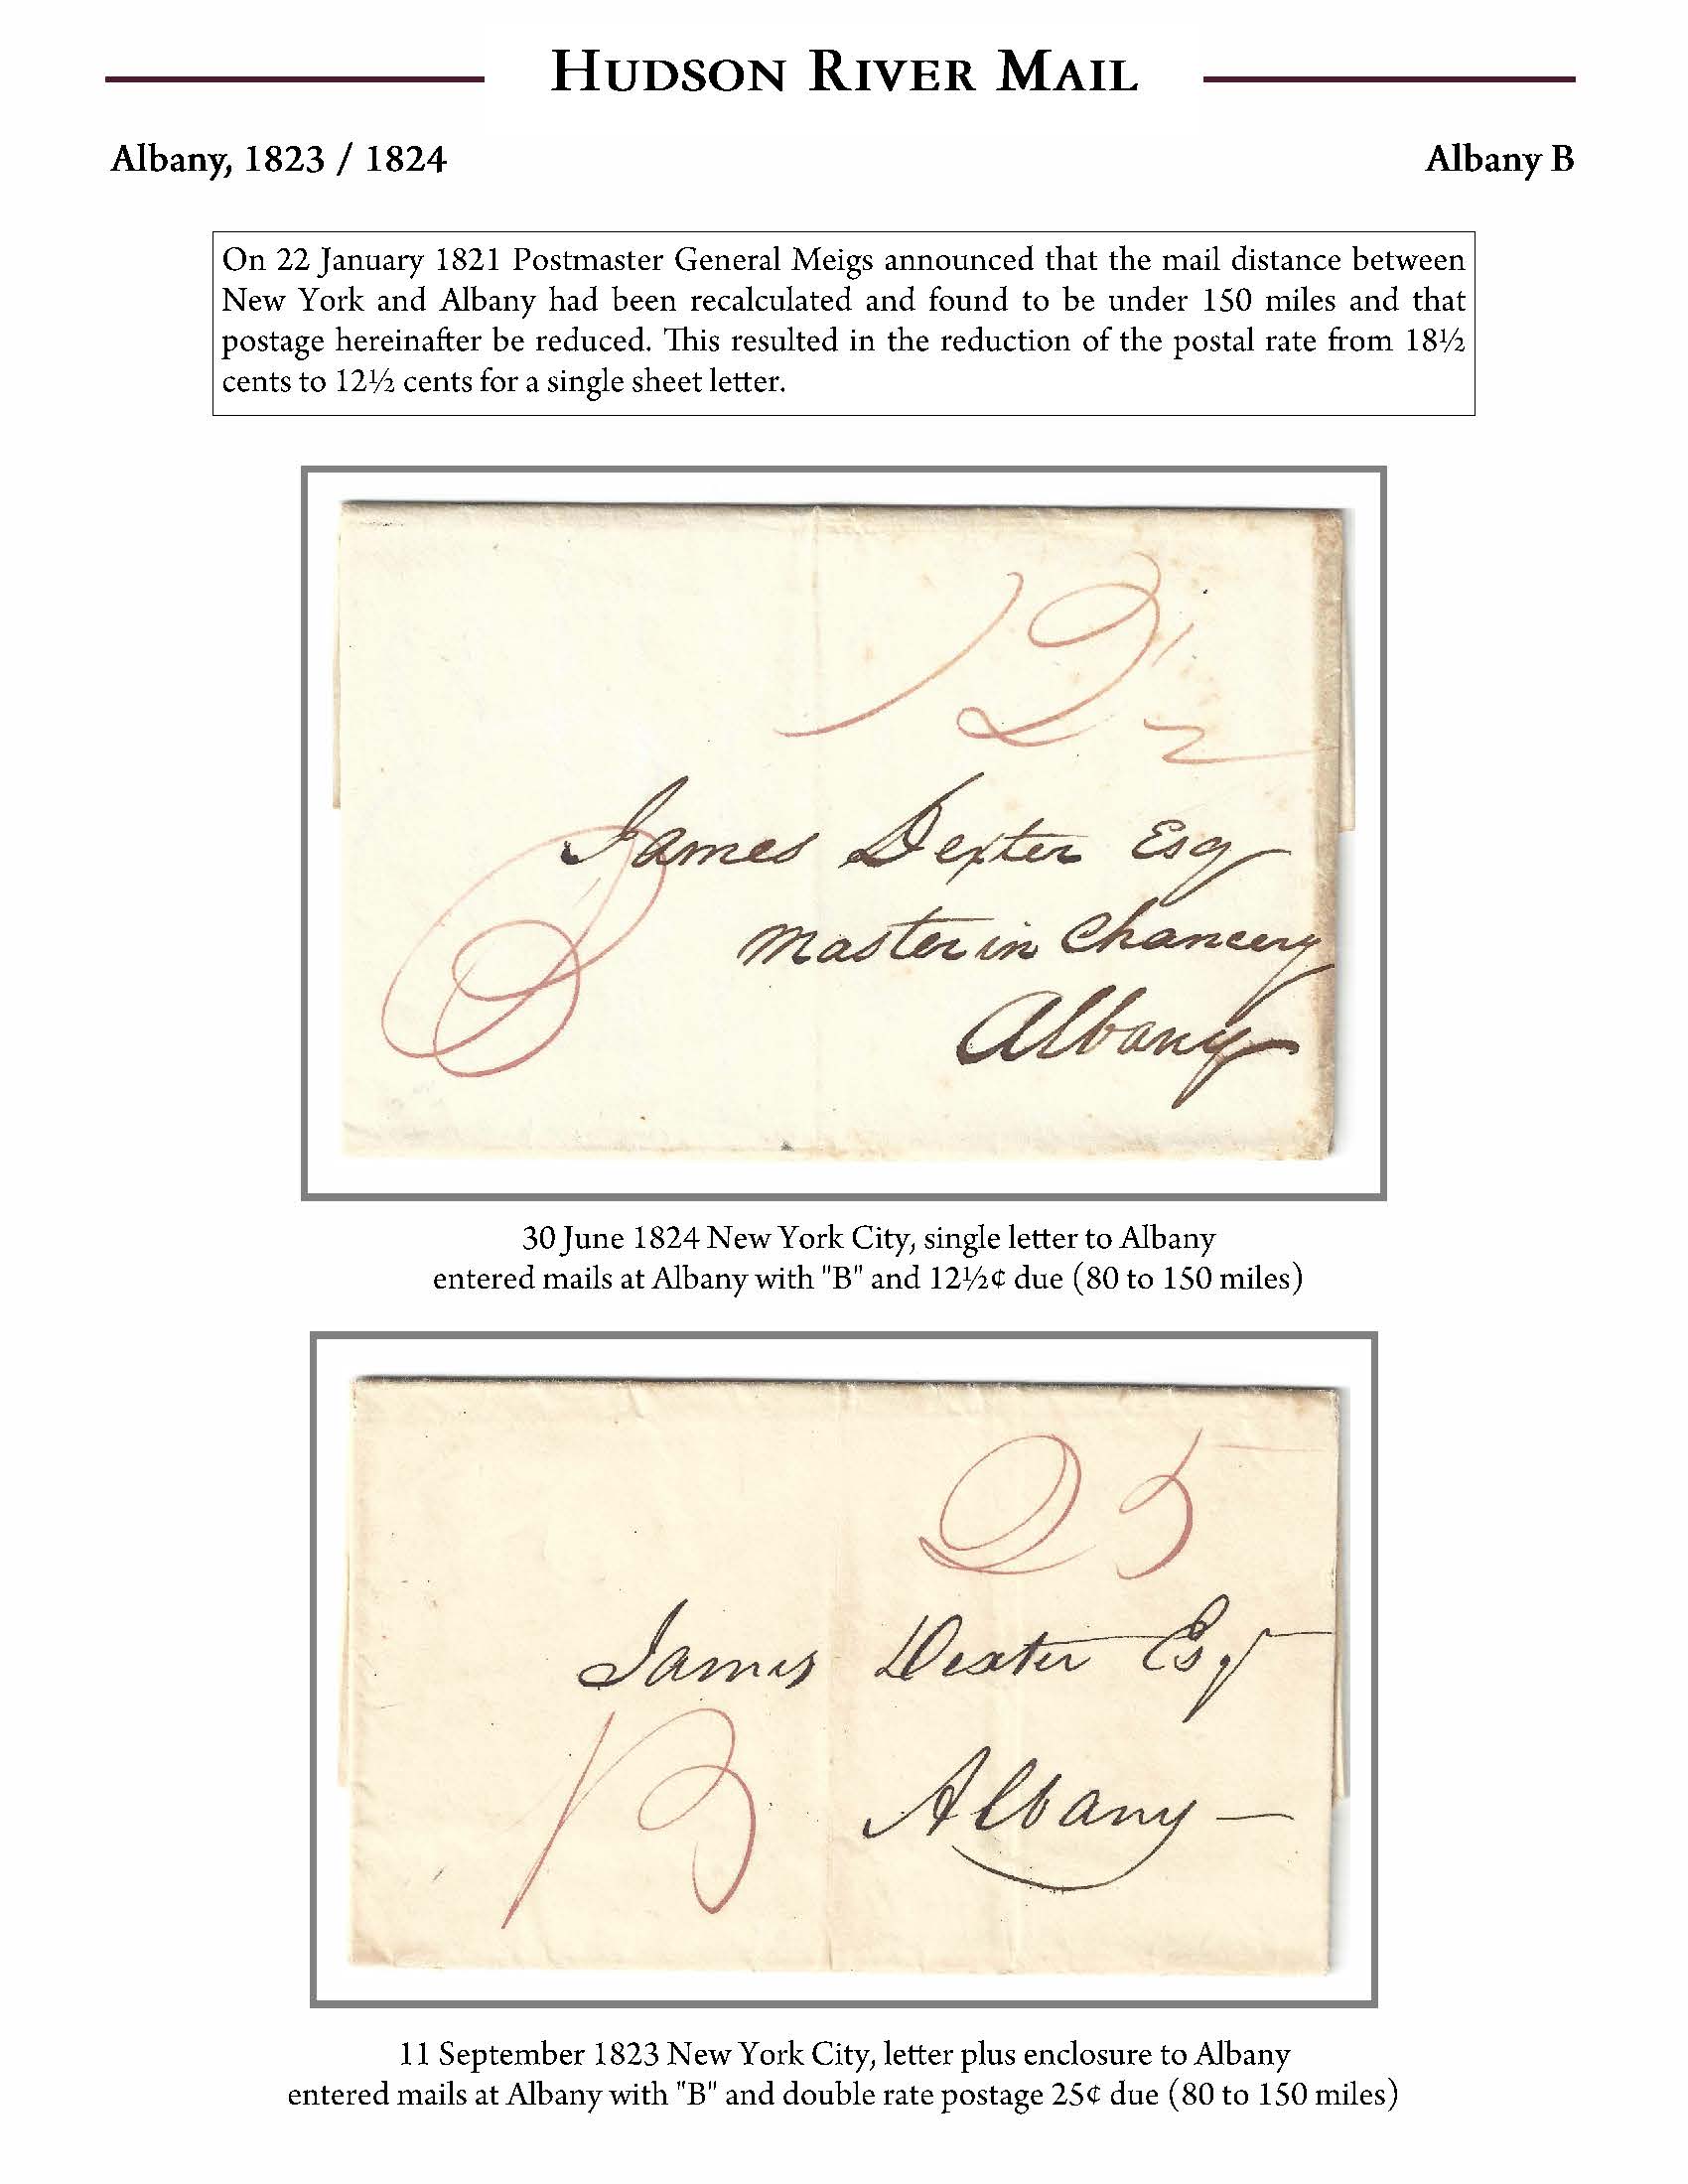 HUDSON RIVER MAIL
Albany, 1823 / 1824
Albany B
On 22 January 1821 Postmaster General Meigs announced that the mail distance between
New York and Albany had been recalculated and found to be under 150 miles and that
postage hereinafter be reduced. This resulted in the reduction of the postal rate from 18½
cents to 12½ cents for a single sheet letter.
12½
James Dexter Esq
Master in Chancery
B
Albany
30 June 1824 New York City, single letter to Albany
entered mails at Albany with "B" and 12½¢ due (80 to 150 miles)
25
James Dexter Esqr
B
Albany —
11 September 1823 New York City, letter plus enclosure to Albany
entered mails at Albany with "B" and double rate postage 25¢ due (80 to 150 miles)